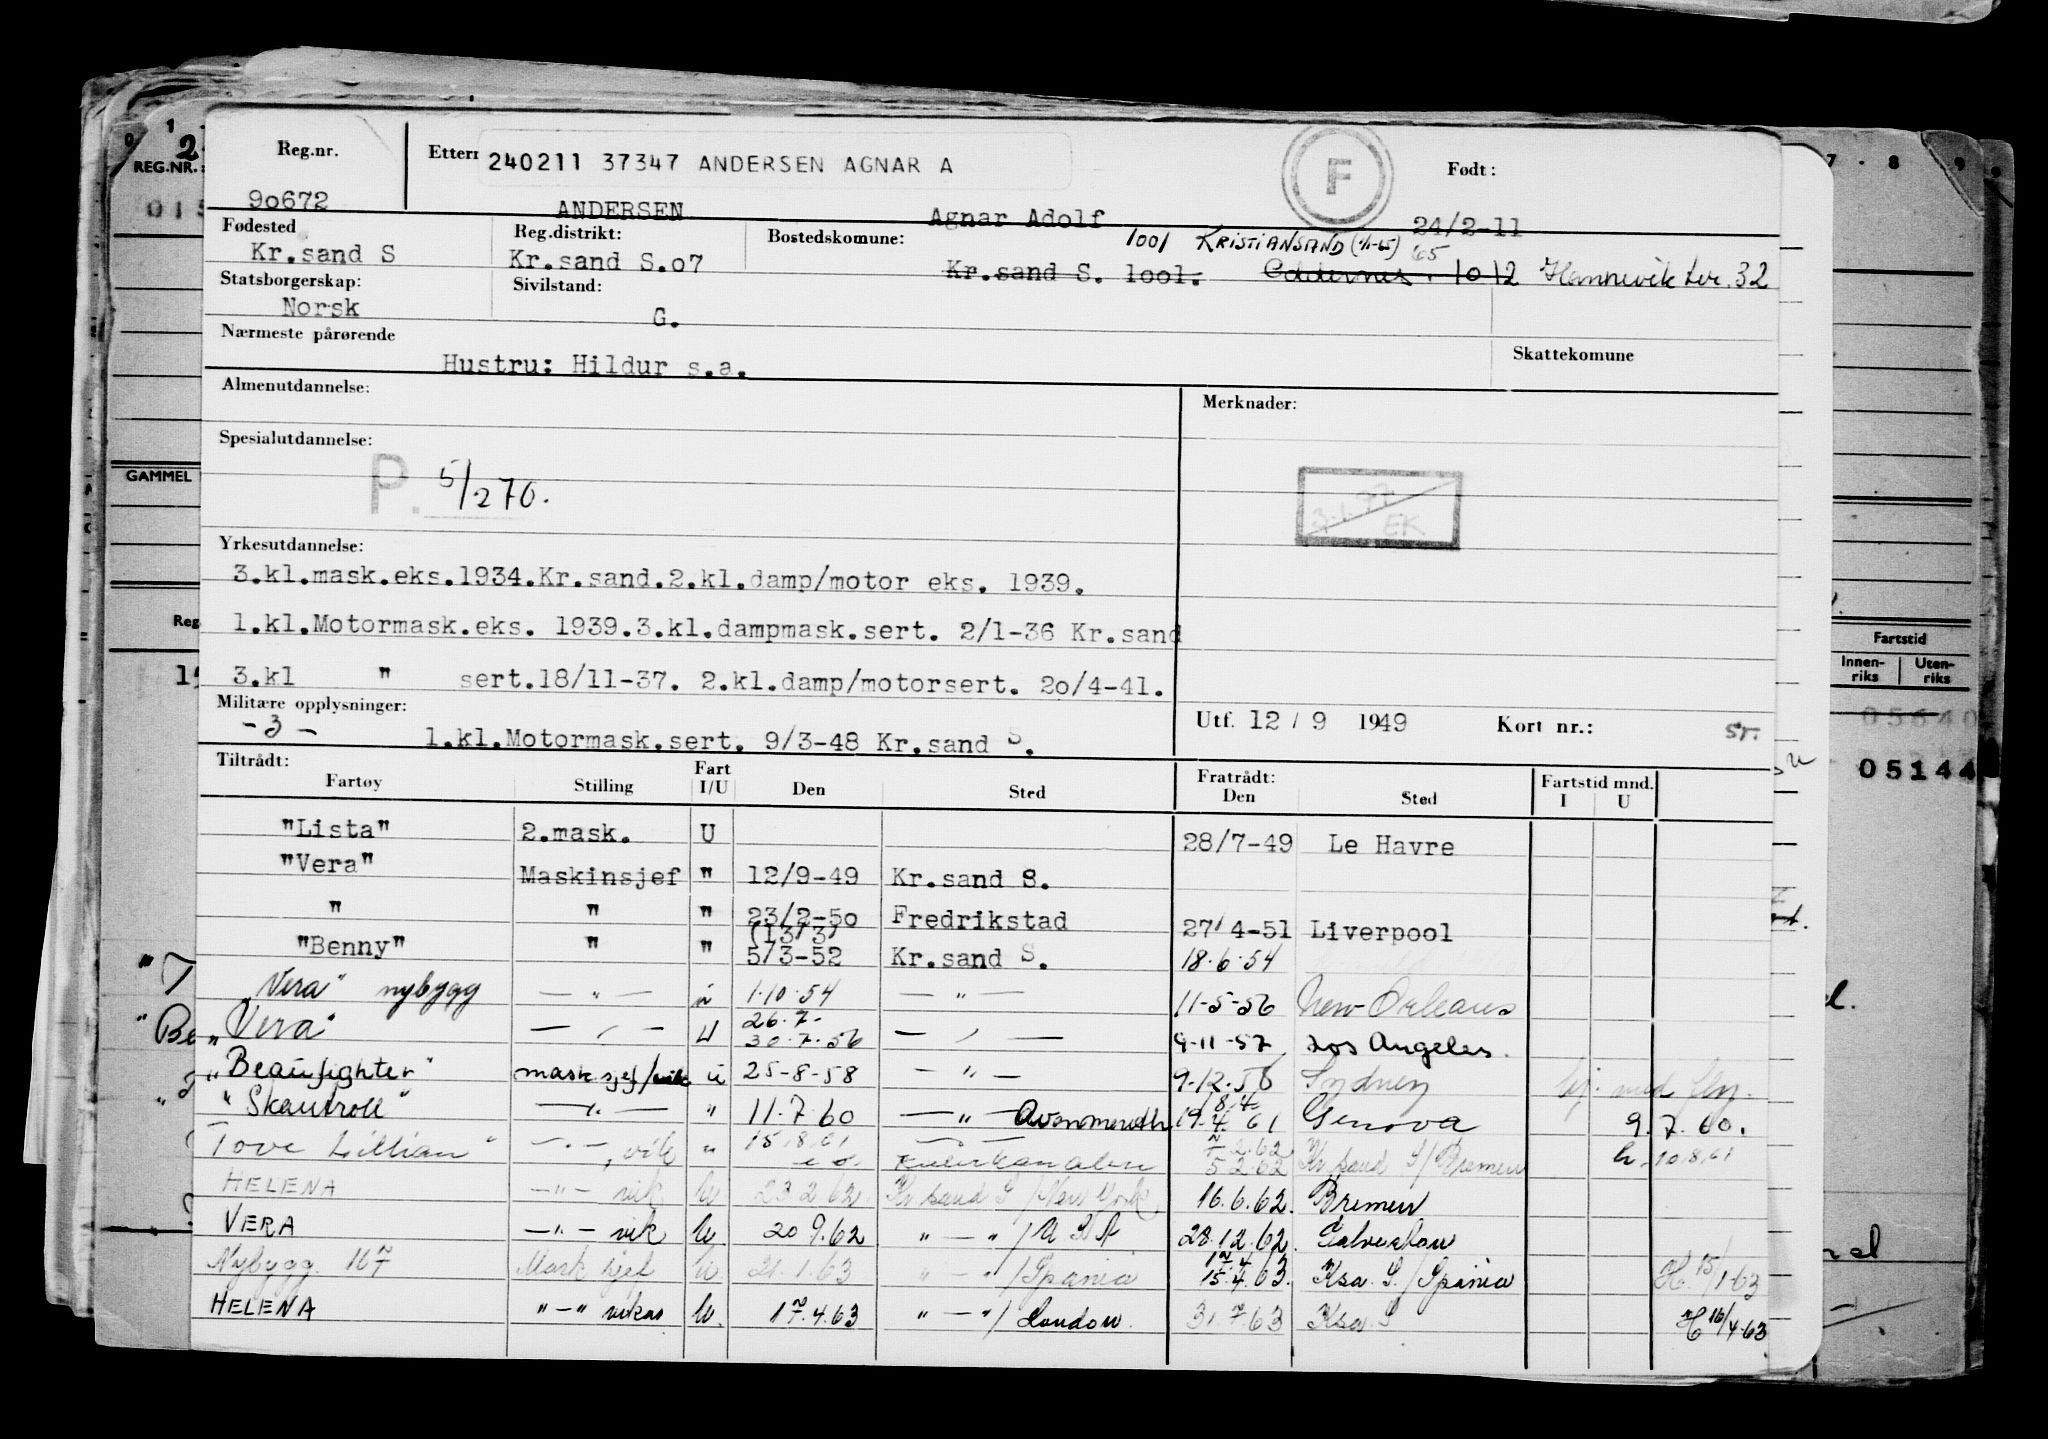 Reg.nr. Ettern 240211 37347 ANDERSEN AGNAR A F Født:
90672 ANDERSEN Agnar Adolf 24/2-11
Fødested Reg.distrikt: Bostedskomune: 1001 KRISTIANSAND 65
Kr.sand S Kr.sand S.07 Kr.sand S. 1001. 1012 Hannevik ter. 32
Statsborgerskap: Sivilstand:
Norsk G.
Nærmeste pårørende Skattekomune
Hustru: Hildur s.a.
Almenutdannelse: Merknader:
Spesialutdannelse:
P. 5/270. 3.1.77 EK
Yrkesutdannelse:
3.kl.mask.eks.1934.Kr.sand.2.kl.damp/motor eks. 1939.
1.kl.Motormask.eks. 1939.3.kl.dampmask.sert. 2/1-36 Kr.sand
3.kl " sert.18/11-37. 2.kl.damp/motorsert. 20/4-41.
Militære opplysninger: Utf. 12/9 1949 Kort nr.: Sr.
-3- 1.kl.Motormask.sert. 9/3-48 Kr.sand S.
Tiltrådt: Fratrådt: Fartstid mnd.
Fartøy Stilling Fart I/U Den Sted Den Sted I U
"Lista" 2.mask. U 28/7-49 Le Havre
"Vera" Maskinsjef " 12/9-49 Kr.sand S.
" " " 23/2-50 Fredrikstad 27/4-51 Liverpool
(13/3)
"Benny" " " 5/3-52 Kr.sand S. 18.6.54
"Vera" nybygg — " — 1.10.54 — " — 11-5-56 New Orleans
26.7-
"Vera" — " — U 30.7.56 — " — 9-11-57 Los Angeles.
"Beaufighter" mask.sjef/vik u 25-8-58 — " — 9-12.58 Sydney
18.4.
"Skautroll" — " — " 11.7.60 — " — Avonmouth 19.4.61 Genova 9.7.60.
Tove Lillian" — " —, vik " 15.8.61 Kielerkanalen 5.2.62 Kr sand S/Bremen h. 10.8.61
HELENA — " — vik U 23.2.62. Kr sand S/New York 16.6.62. Bremen
VERA — " — vik U 20 9.62 " — " / U S A 28.12.62. Galveston
Nybygg. 167 Mask sjef U. 21.1.63 " — " / Spania 15.4.63. Ksa. S./Spania H. 15/1-63
HELENA " — " vikar U. 17.4.63 " — " / London. 31.7.63 Ksa. S H 16/4-63
0 1 7 . 8 . 9
REG.NR.:
GAMMEL
Reg
Fartstid
Innen-riks Uten-riks
05640
05144